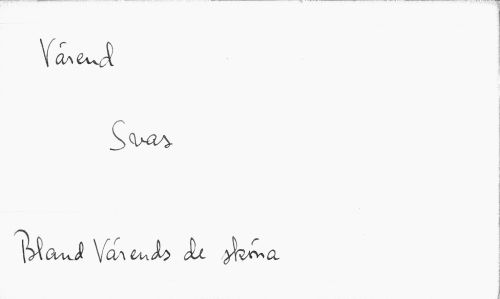 Värend
Svas
Bland Värends de sköna